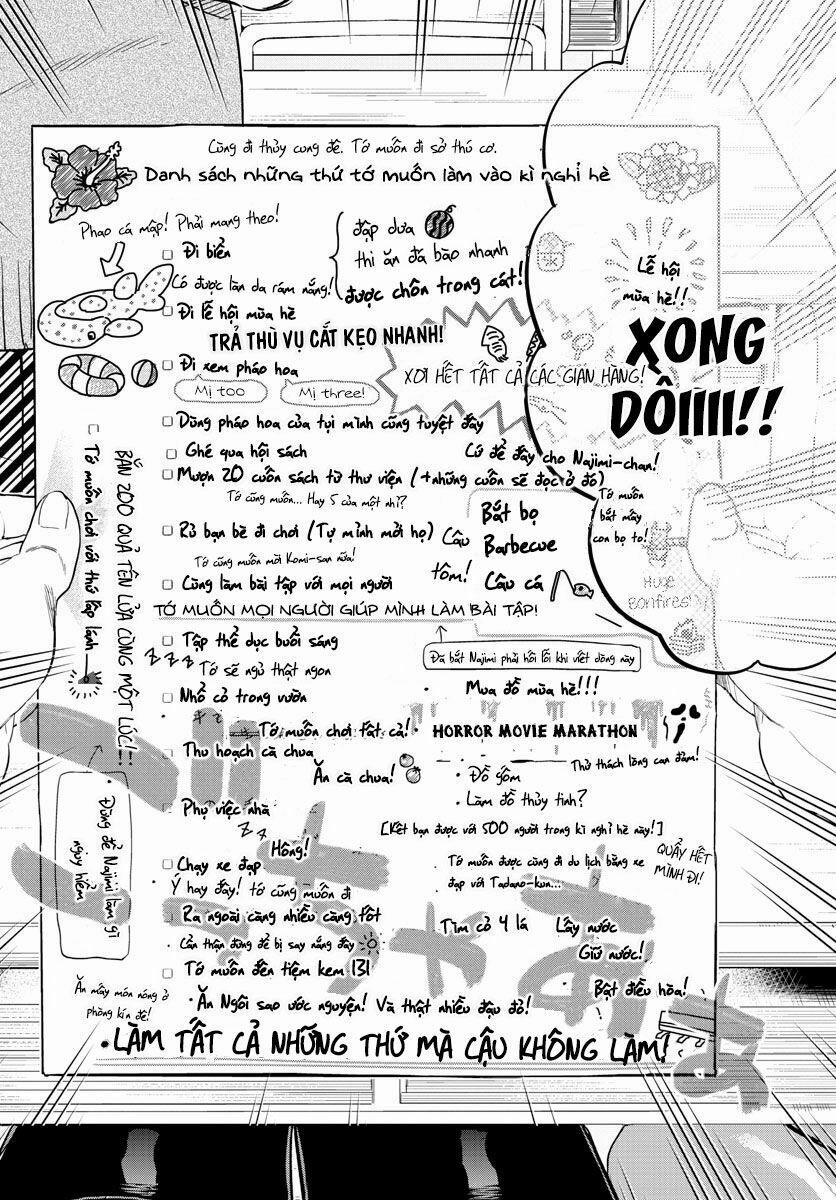 Cùng đi thủy cung đê. Tớ muốn đi sở thú cơ.
Danh sách những thứ tớ muốn làm vào kì nghỉ hè
Phao cá mập! Phải mang theo!
Đi biển
đập dưa
thi ăn đá bào nhanh
được chôn trong cát!
Có được làn da rám nắng!
Đi lễ hội mùa hè
Lễ hội
mùa hè!!
XONG
DỒIIIII!!
TRẢ THÙ VỤ CẮT KẸO NHANH!
XƠI HẾT TẤT CẢ CÁC GIAN HÀNG!
Đi xem pháo hoa
Mị too
Mị three!
Dùng pháo hoa của tụi mình cũng tuyệt đấy
Ghé qua hội sách
Cứ để đấy cho Najimi-chan!
Mượn 20 cuốn sách từ thư viện (+những cuốn sẽ đọc ở đó)
Tớ cũng muốn... Hay 5 của một nhỉ?
Tớ muốn
bắt mấy
con bọ to!
Rủ bạn bè đi chơi (Tự mình mời họ)
Tớ cũng muốn mời Komi-san nữa!
Câu
tôm!
Bắt bọ
Barbecue
Câu cá
Cùng làm bài tập với mọi người
Huge
Bonfires!
TỚ MUỐN MỌI NGƯỜI GIÚP MÌNH LÀM BÀI TẬP!
BẮN 200 QUẢ TÊN LỬA CÙNG MỘT LÚC!
Tớ muốn chơi với thứ lấp lánh
Tập thể dục buổi sáng
z z z
Tớ sẽ ngủ thật ngon
Đã bắt Najimi phải hối lỗi khi viết dòng này
Nhổ cỏ trong vườn
Mua đồ mùa hè!!!
Tớ muốn chơi tất cả!
HORROR MOVIE MARATHON
Thu hoạch cà chua
Thử thách lòng can đảm!
Ăn cà chua!
Đồ gốm
Làm đồ thủy tinh?
Đừng để Najimi làm gì
nguy hiểm
Phụ việc nhà
z z
[Kết bạn được với 500 người trong kì nghỉ hè này!]
Hông!
QUẨY HẾT
MÌNH ĐI!
Chạy xe đạp
Tớ muốn được cùng đi du lịch bằng xe
đạp với Tadano-kun...
Ý hay đấy! tớ cũng muốn đi
Ra ngoài càng nhiều càng tốt
Tìm cỏ 4 lá
Lấy nước
Giữ nước!
Cẩn thận đừng để bị say nắng đấy
Tớ muốn đến tiệm kem 131
Bật điều hòa!
Ăn mấy món nóng ở
phòng kín đê!
Ăn Ngôi sao ước nguyện! Và thật nhiều đậu đỏ!
LÀM TẤT CẢ NHỮNG THỨ MÀ CẬU KHÔNG LÀM!